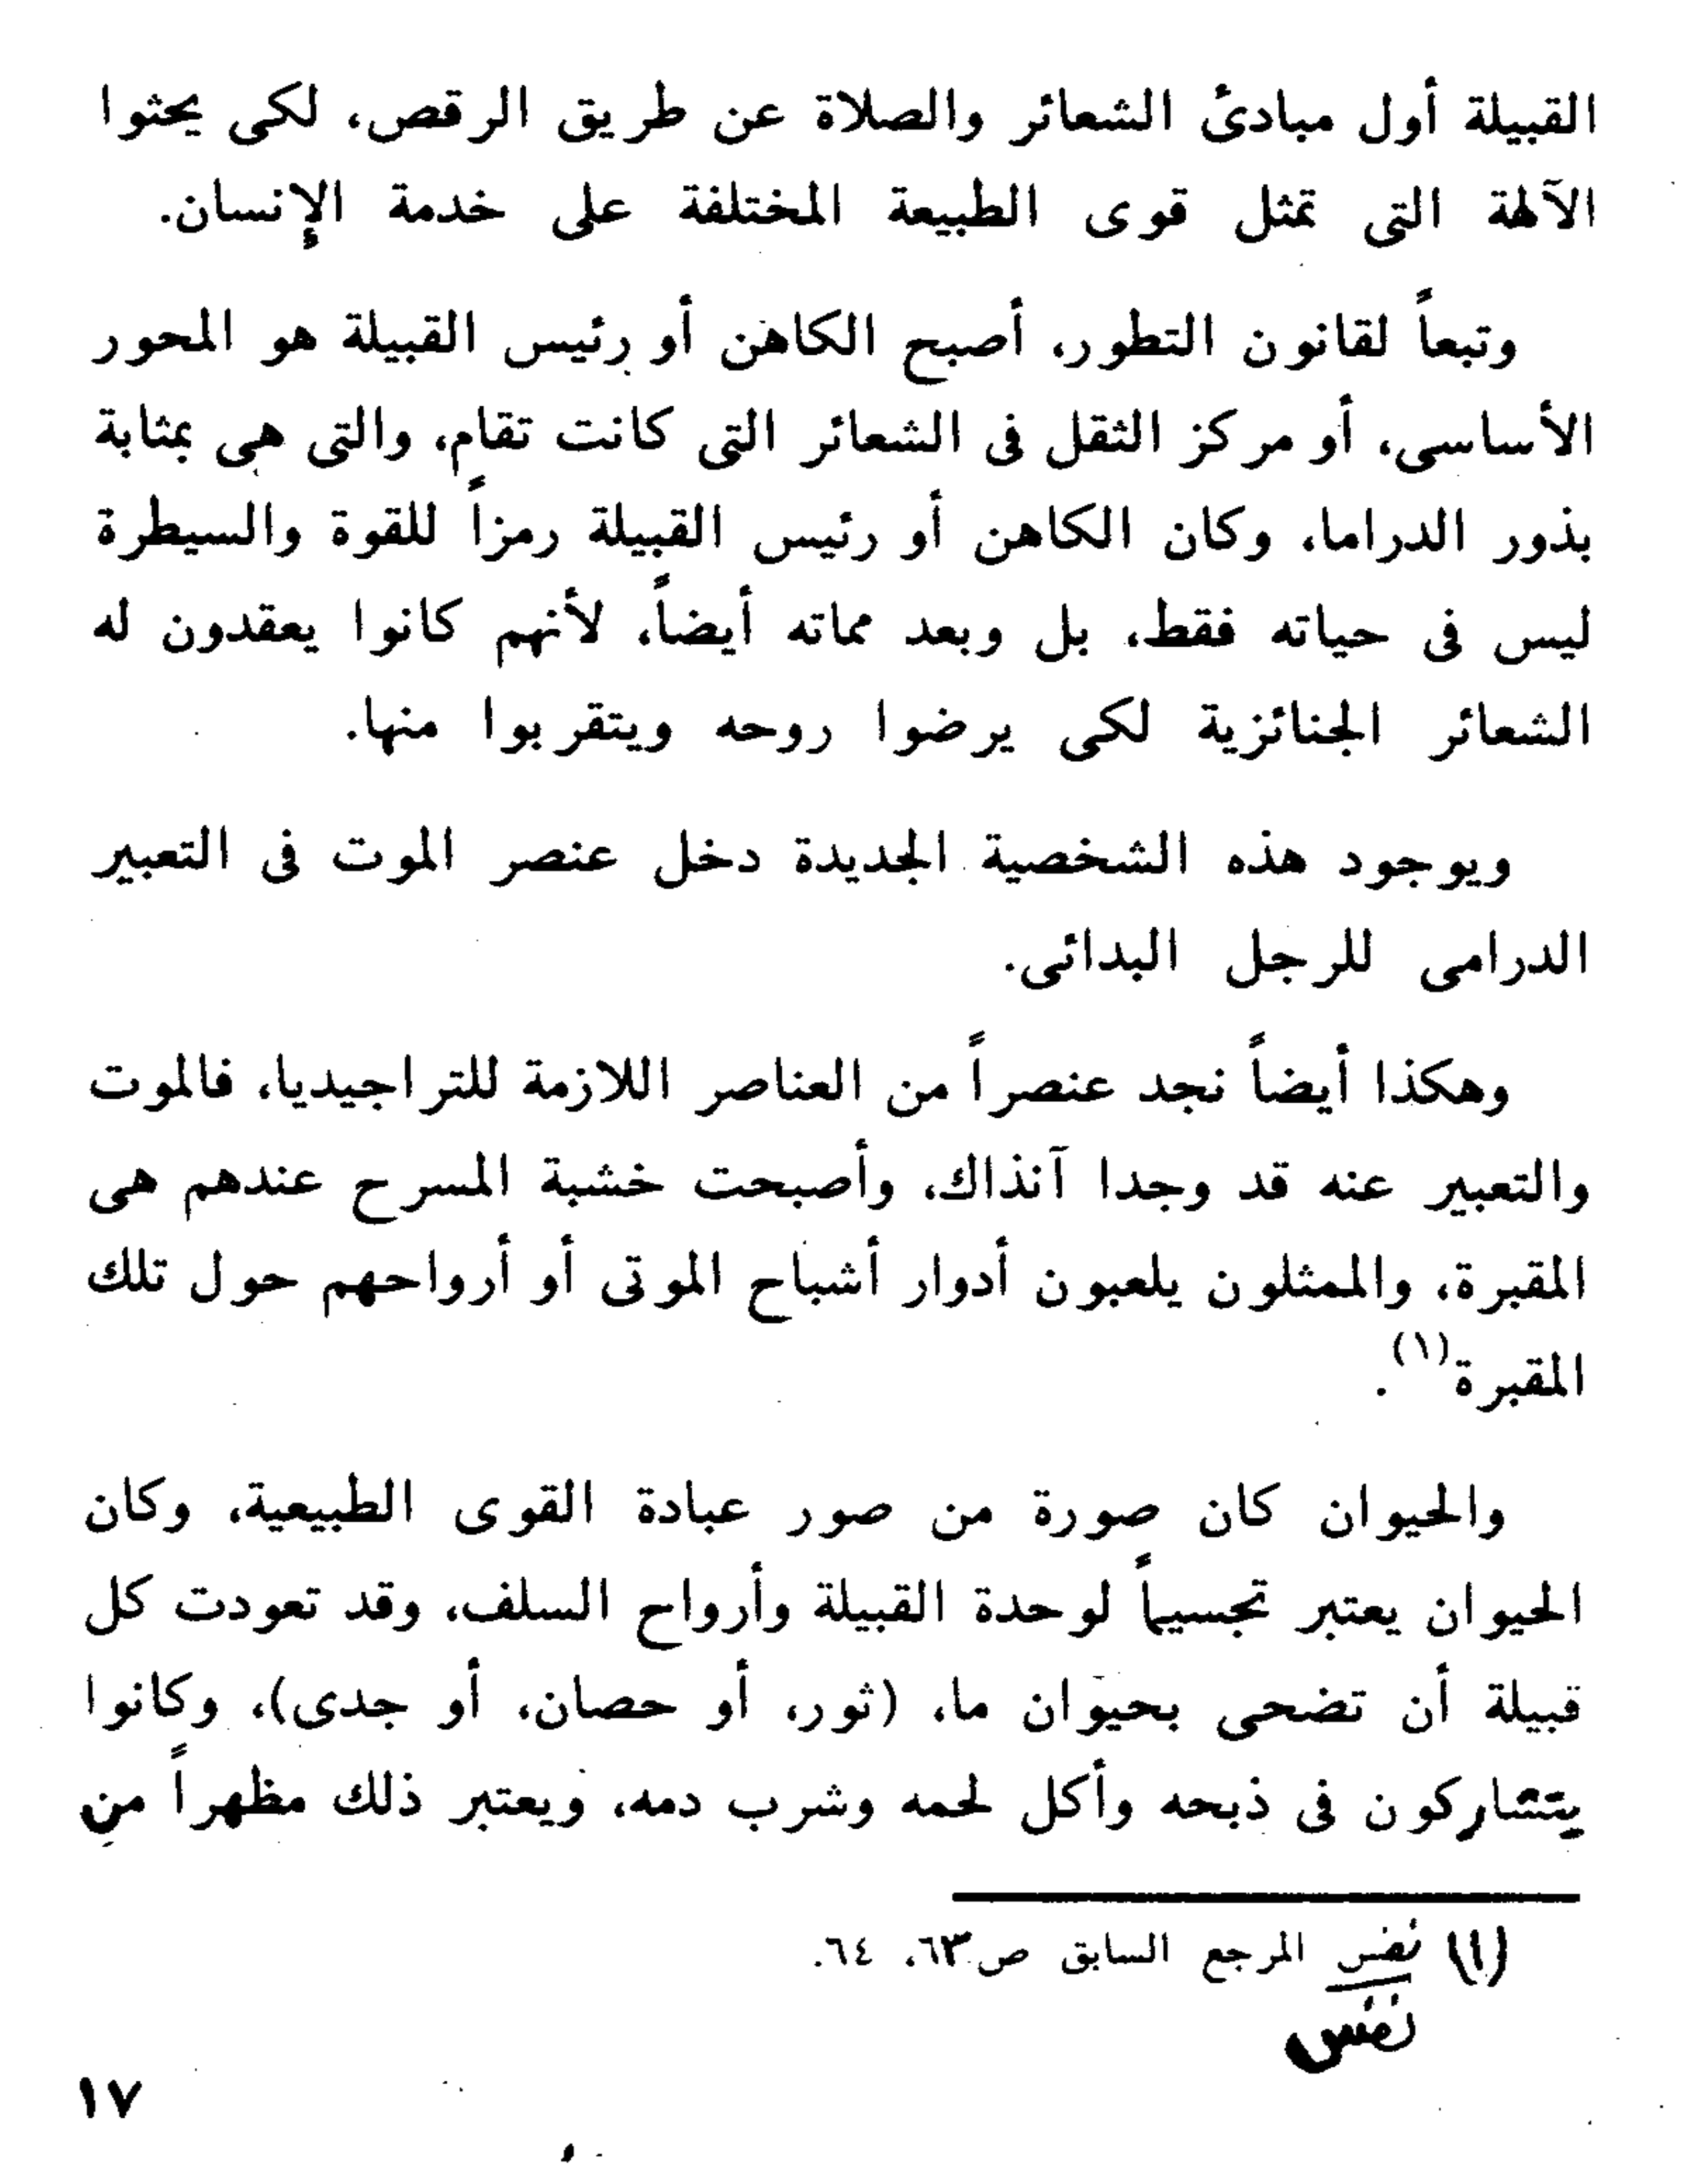 القبيلة أول مبادئ الشعائر والصلاة عن طريق الرقص، لكى يحثوا
الآلهة التى تمثل قوى الطبيعة المختلفة على خدمة الإنسان.
وتبعاً لقانون التطور، أصبح الكاهن أو رئيس القبيلة هو المحور
الأساسى، أو مركز الثقل فى الشعائر التى كانت تقام، والتى هى بمثابة
بذور الدراما، وكان الكاهن أو رئيس القبيلة رمزاً للقوة والسيطرة
ليس فى حياته فقط، بل وبعد مماته أيضاً، لأنهم كانوا يعقدون له
الشعائر الجنائزية لكى يرضوا روحه ويتقربوا منها.
وبوجود هذه الشخصية الجديدة دخل عنصر الموت فى التعبير
الدرامى للرجل البدائى.
وهكذا أيضاً نجد عنصراً من العناصر اللازمة للتراجيديا، فالموت
والتعبير عنه قد وجدا آنذاك، وأصبحت خشبة المسرح عندهم هى
المقبرة، والممثلون يلعبون أدوار أشباح الموتى أو أرواحهم حول تلك
المقبرة(١).
والحيوان كان صورة من صور عبادة القوى الطبيعية، وكان
الحيوان يعتبر تجسيماً لوحدة القبيلة وأرواح السلف، وقد تعودت كل
قبيلة أن تضحى بحيوان ما، (ثور، أو حصان، أو جدى)، وكانوا
يتشاركون فى ذبحه وأكل لحمه وشرب دمه، ويعتبر ذلك مظهراً من
(١) نفس المرجع السابق ص ٦٣، ٦٤.
نفس
١٧